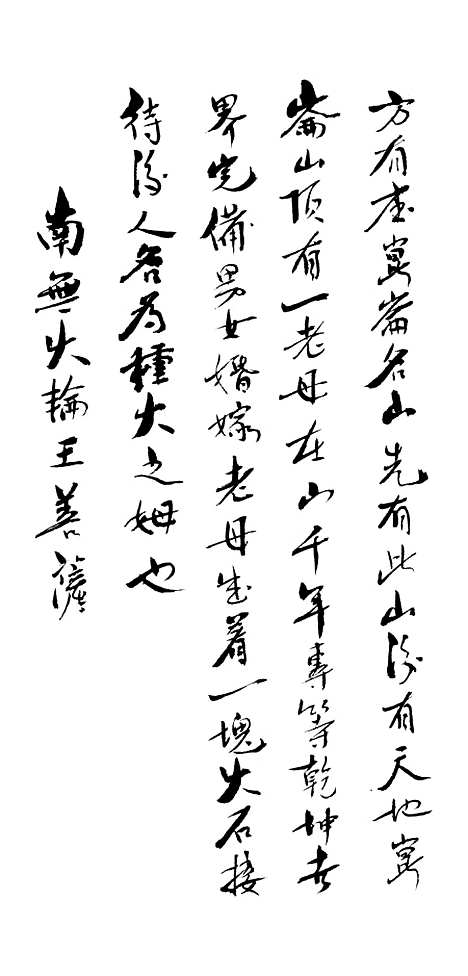 方有座崑崙名山先有此山後有天地崑
崙山頂有一老母在山千年專等乾坤世
界完備男女婚嫁老母坐着一塊火石接
待後人名為種火之姆也
南無火輪王菩薩